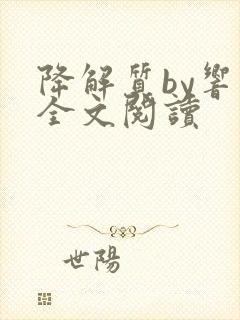 降解質by響
全文閱讀
世陽